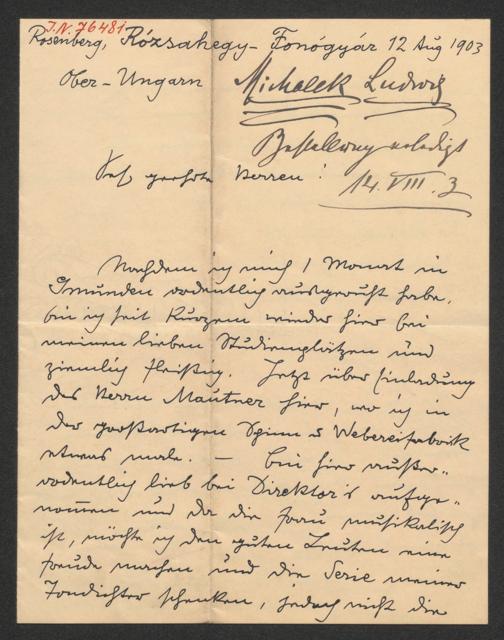 J.N. 76481
Rosenberg, Rózsahegy - Fonógyár 12 Aug 1903
Ober-Ungarn
Michalek Ludwig
Bestellung erledigt
14. VIII. 3
Sehr geehrte Herren!
Nachdem ich mich 1 Monat in
Gmunden ordentlich ausgeruht habe,
bin ich seit Kurzem wieder hier bei
meinen lieben Studienplätzen und
ziemlich fleißig. Jetzt über Einladung
des Herrn Mautner hier, wo ich in
der großartigen Spinn & Webereifabrik
etwas male. — Bin hier außer-
ordentlich lieb bei Direktor's aufge-
nommen und da die Frau musikalisch
ist, möchte ich den guten Leuten eine
Freude machen und die Serie meiner
Tondichter schenken, jedoch nicht die